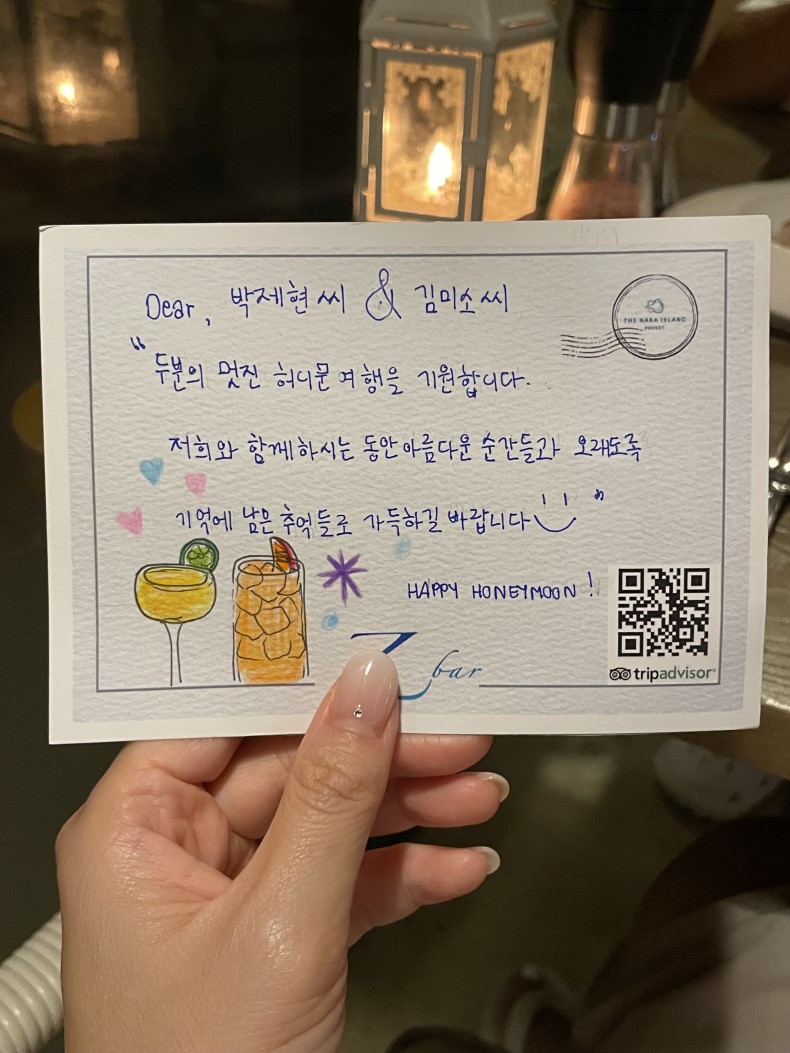 Dear, 박제현 씨 & 김미소 씨
THE NAKA ISLAND
PHUKET
"두분의 멋진 허니문 여행을 기원합니다.
저희와 함께하시는 동안 아름다운 순간들과 오래도록
기억에 남은 추억들로 가득하길 바랍니다"
HAPPY HONEYMOON!
Z bar
tripadvisor